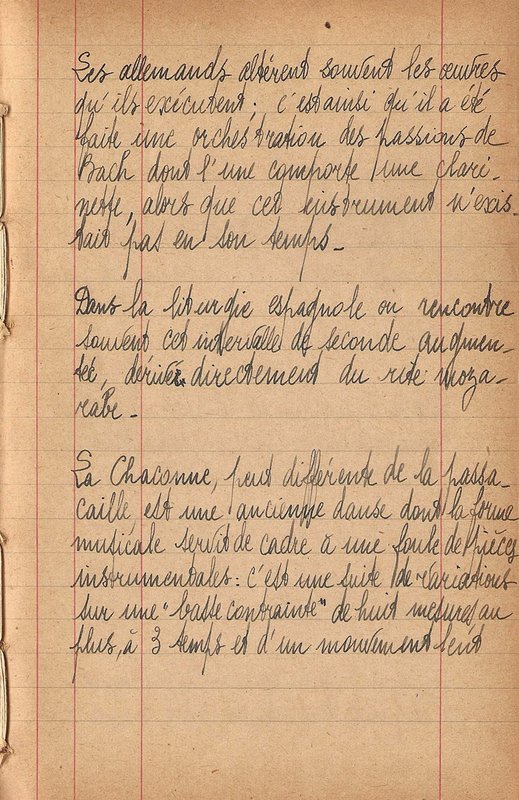 Les allemands altèrent souvent les œuvres
qu'ils exécutent; c'est ainsi qu'il a été
faite une orchestration des passions de
Bach dont l'une comporte une clari-
nette, alors que cet instrument n'exis-
tait pas en son temps_
Dans la liturgie espagnole on rencontre
souvent cet intervalle de seconde augmen-
teé, dérivée directement du rite moza-
rabe_
La Chaconne, peut différente de la passa-
caille, est une ancienne danse dont la forme
musicale servit de cadre à une foule de pièces
instrumentales: c'est une suite de variations
sur une "basse contrainte" de huit mesures au
plus, à 3 temps et d'un mouvement lent